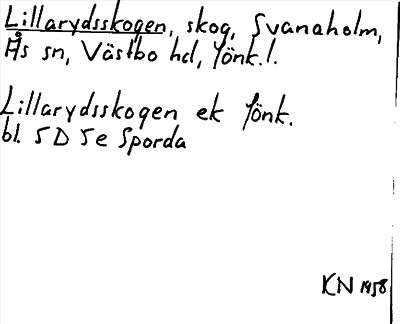 Lillarydsskogen, skog, Svanaholm,
Ås sn, Västbo hd, Jönk.l.
Lillarydsskogen ek Jönk.
bl. 5D 5e Sporda
KN 1958